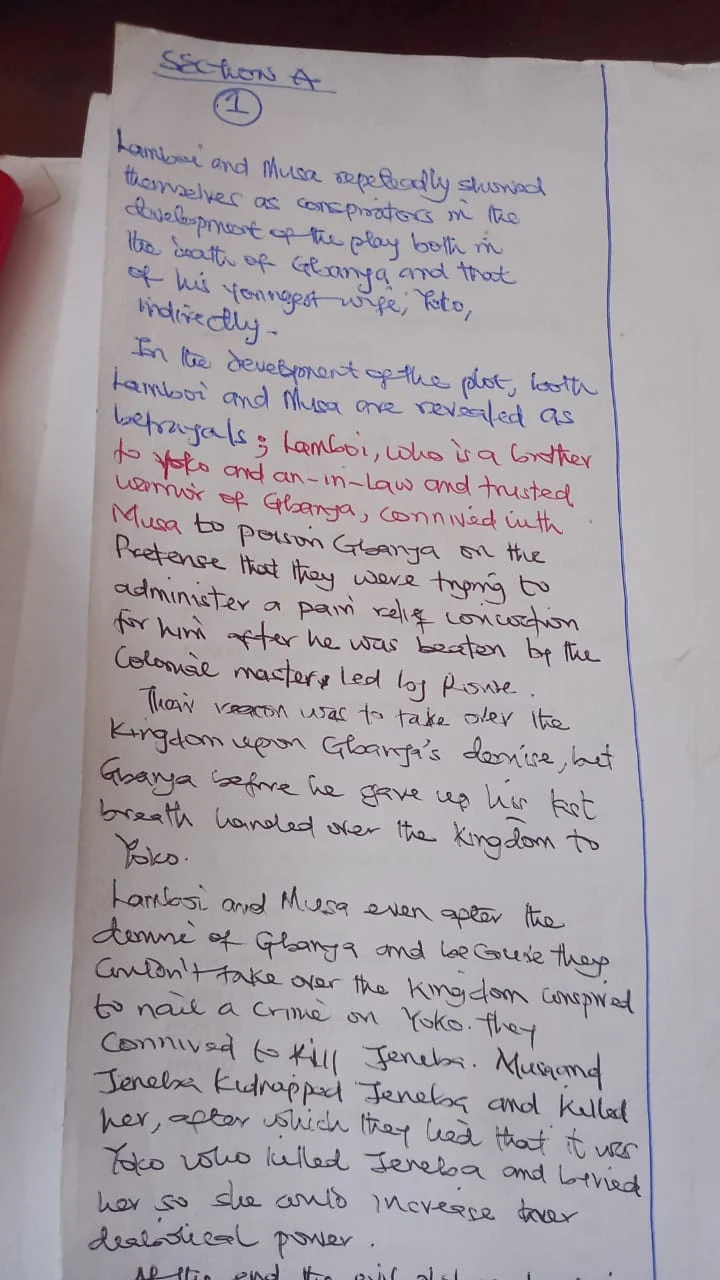 SECTION A
1
Lamboi and Musa repeatedly showed
themselves as conspirators in the
development of the play both in
the death of Gbanya and that
of his youngest wife, Yoko,
indirectly.
In the development of the plot, both
Lamboi and Musa are revealed as
betrayals; Lamboi, who is a brother
to Yoko and an-in-Law and trusted
warrior of Gbanya, connived with
Musa to poison Gbanya on the
Pretense that they were trying to
administer a pain relief concoction
for him after he was beaten by the
Colonial masters led by Rowe.
Their reason was to take over the
Kingdom upon Gbanya's demise, but
Gbanya before he gave up his last
breath handed over the Kingdom to
Yoko.
Lamboi and Musa even after the
demise of Gbanya and because they
couldn't take over the Kingdom conspired
to nail a crime on Yoko. They
Connived to Kill Jeneba. Musa and
Jeneba Kidnapped Jeneba and Killed
her, after which they lied that it was
Yoko who killed Jeneba and buried
her so she could increase her
diabolical power.